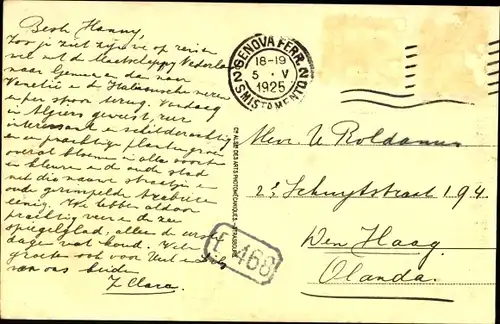 Beste Hanny,
Zoo je ziet zijn we op reis en
wel met de Maatschappy Nederland
naar Genua en dan naar
Venetië en de Italiaansche meren
en per spoor terug. Vandaag
in Algiers geweest, zeer
interessant en schilderachtig
en en prachtige plantengroei
overal bloemen in alle soorten
en kleuren en de oude stad
met die nauwe straatjes en
oude gerimpelde Arabieren
eenig. We hebben aldoor
prachtig weer en de zee
spiegelglad, alleen de eerste
dagen wat koud. Vele
groeten ook voor
van ons beiden
Clara.
GENOVA FERR.
18-19
5 · V
1925
SMISTAMENTO
Mevr. Roldanus
2e Schuytstraat 194.
Den Haag
Olanda.
f 466